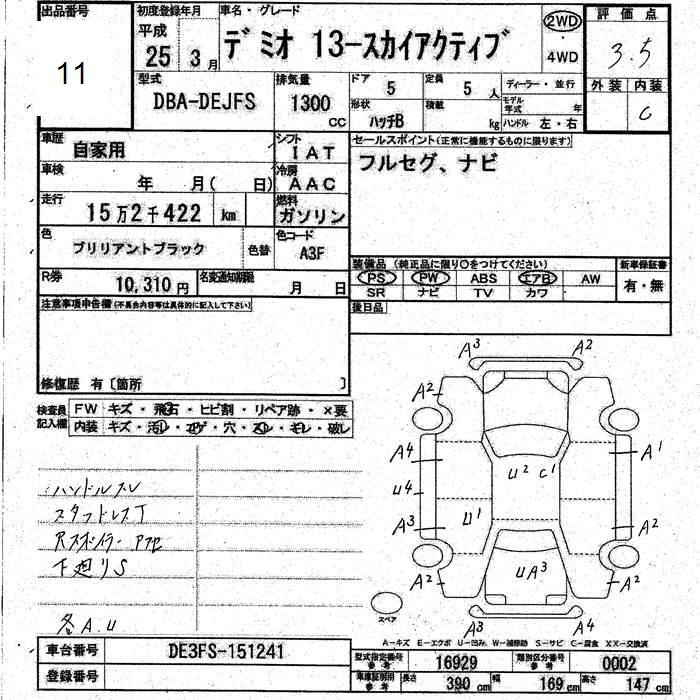 出品番号 初度登録年月 車名・グレード 評価点
11 平成 25 3月 デミオ 13-スカイアクティブ 2WD ・ 4WD 3.5
型式 排気量 ドア 5 定員 5人 ディーラー・並行 外装 内装
DBA-DEJFS 1300 CC 形状 ハッチB 積載 kg モデル年式 年 ハンドル 左・右 C
車歴 自家用 シフト IAT セールスポイント(正常に機能するものに限ります)
車検 年 月( 日) 冷房 AAC フルセグ、ナビ
走行 15万2千422 km 燃料 ガソリン
色 ブリリアントブラック 色替 色コード A3F
装備品 (純正品に限り○をつけてください) 新車保証書
R券 10,310円 名変通知期限 月 日 PS PW ABS エアB AW 有・無
SR ナビ TV カワ
注意事項申告欄(不具合内容等は具体的に記入して下さい) 後日品
修復歴 有〔箇所 〕
検査員記入欄 FW キズ・飛石・ヒビ割・リペア跡・×要
内装 キズ・汚レ・コゲ・穴・スレ・キレ・破レ
A3 A2
A2
A4 A1
U2 C1
U4
A3 U1 A2
UA3
A2 A2
A3 A4
ハンドルスレ
スタッドレスT
Rスポイラー
下廻りS
各A.U
スペア
A-キズ E-エクボ U-凹み W-補修跡 S-サビ C-腐食 XX-交換済
車台番号 DE3FS-151241
型式指定番号 参考 16929 類別区分番号 参考 0002
登録番号 車庫証明用 参考 長さ 390cm 幅 169cm 高さ 147cm